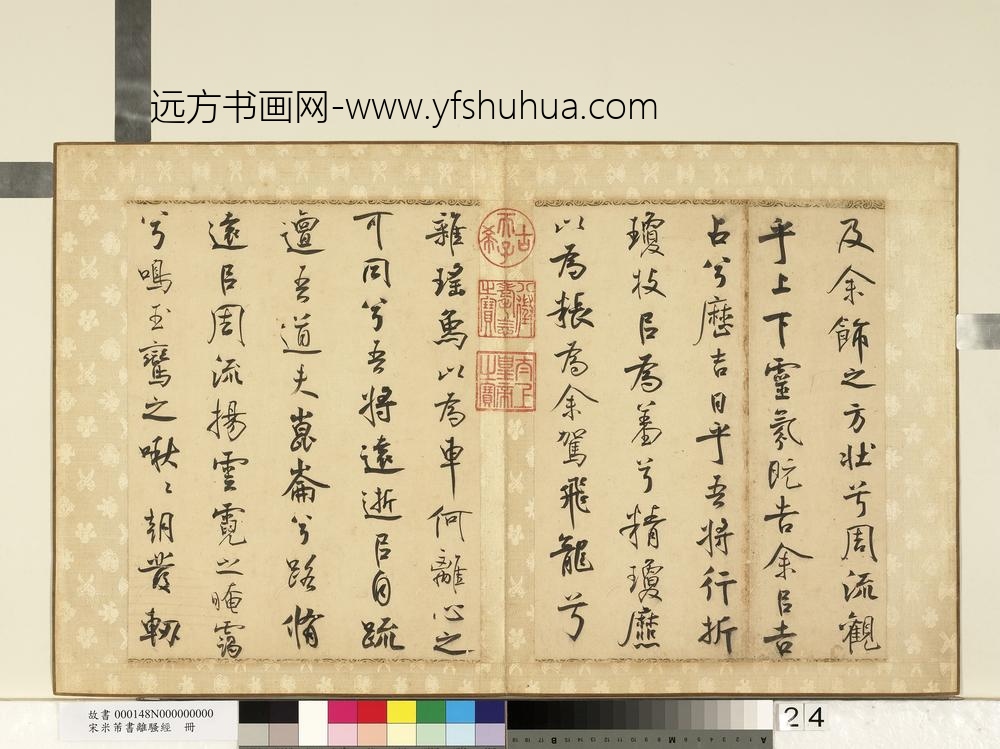 远方书画网-www.yfshuhua.com
及余飾之方壮兮周流觀
乎上下靈氛既告余㠯吉
占兮歷吉日乎吾将行折
瓊枝㠯為羞兮精瓊爢
以為粻為余駕飛龍兮
雜瑤象以為車何離心之
可同兮吾將遠逝㠯自疏
邅吾道夫崑崙兮路脩
遠㠯周流揚雲霓之晻靄
兮鳴玉鸞之啾〻朝發軔
古希天子
八徵耄念之寶
太上皇帝之寶
故書 000148N000000000
宋米芾書離騷經 冊
24